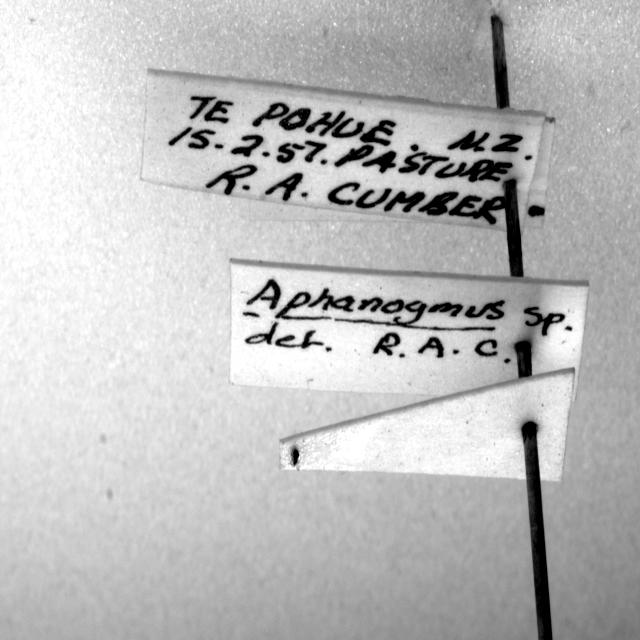 TE POHUE. N.Z.
15.2.57. PASTURE
R.A. CUMBER.
Aphanogmus sp.
det. R.A.C.